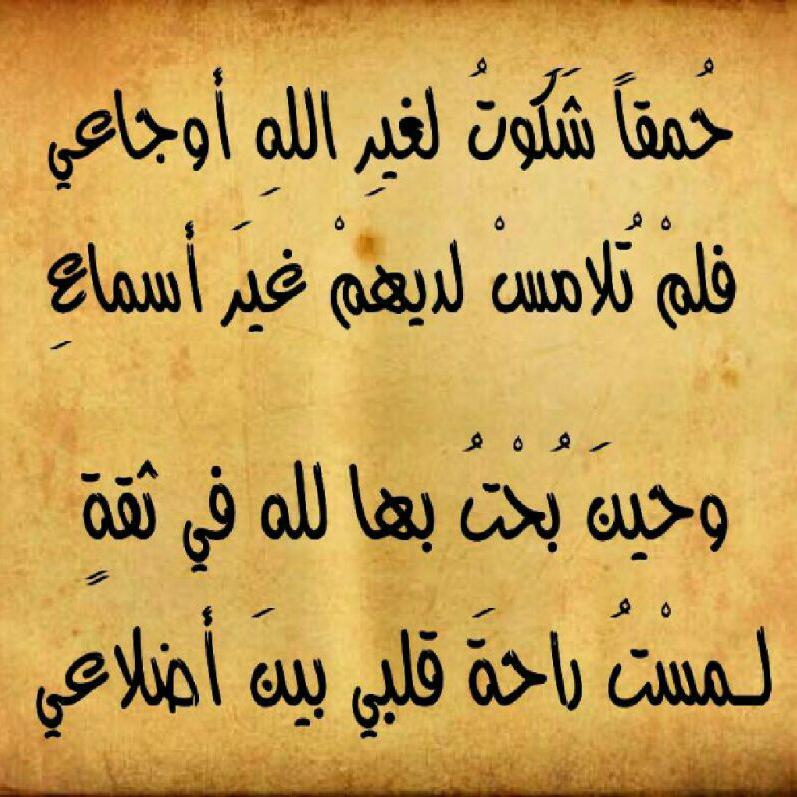 حُمقاً شَكَوتُ لغيرِ اللهِ أوجاعي
فلمْ تُلامسْ لديهمْ غيرَ أسماعِ
وحينَ بُحْتُ بها لله في ثقةٍ
لـمسْتُ راحةَ قلبي بينَ أضلاعي